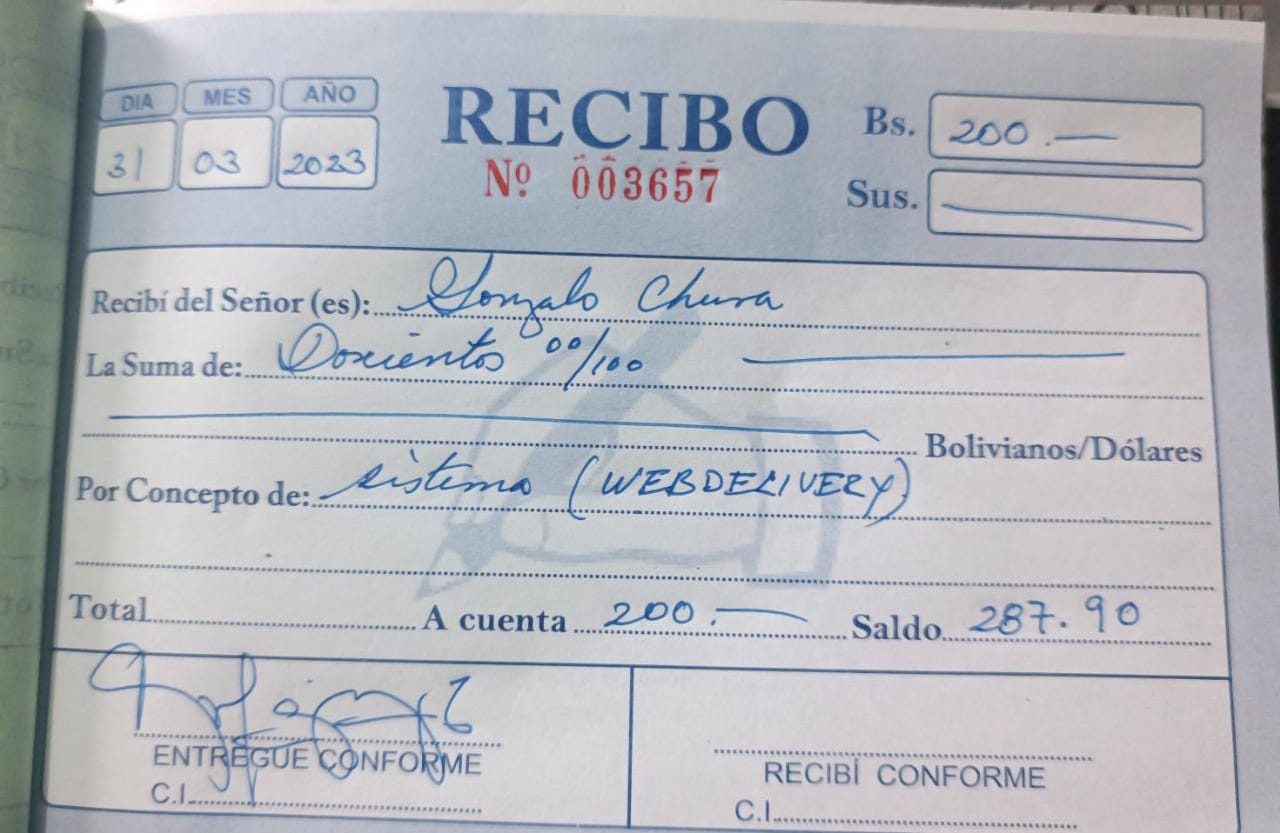 DIA MES AÑO
31 03 2023
RECIBO
Nº 003657
Bs. 200.—
Sus. —
Recibí del Señor (es): Gonzalo Chura
La Suma de: Doscientos 00/100
Bolivianos/Dólares
Por Concepto de: sistema (WEBDELIVERY)
Total A cuenta 200.— Saldo 287.90
ENTREGUE CONFORME
C.I.
RECIBÍ CONFORME
C.I.